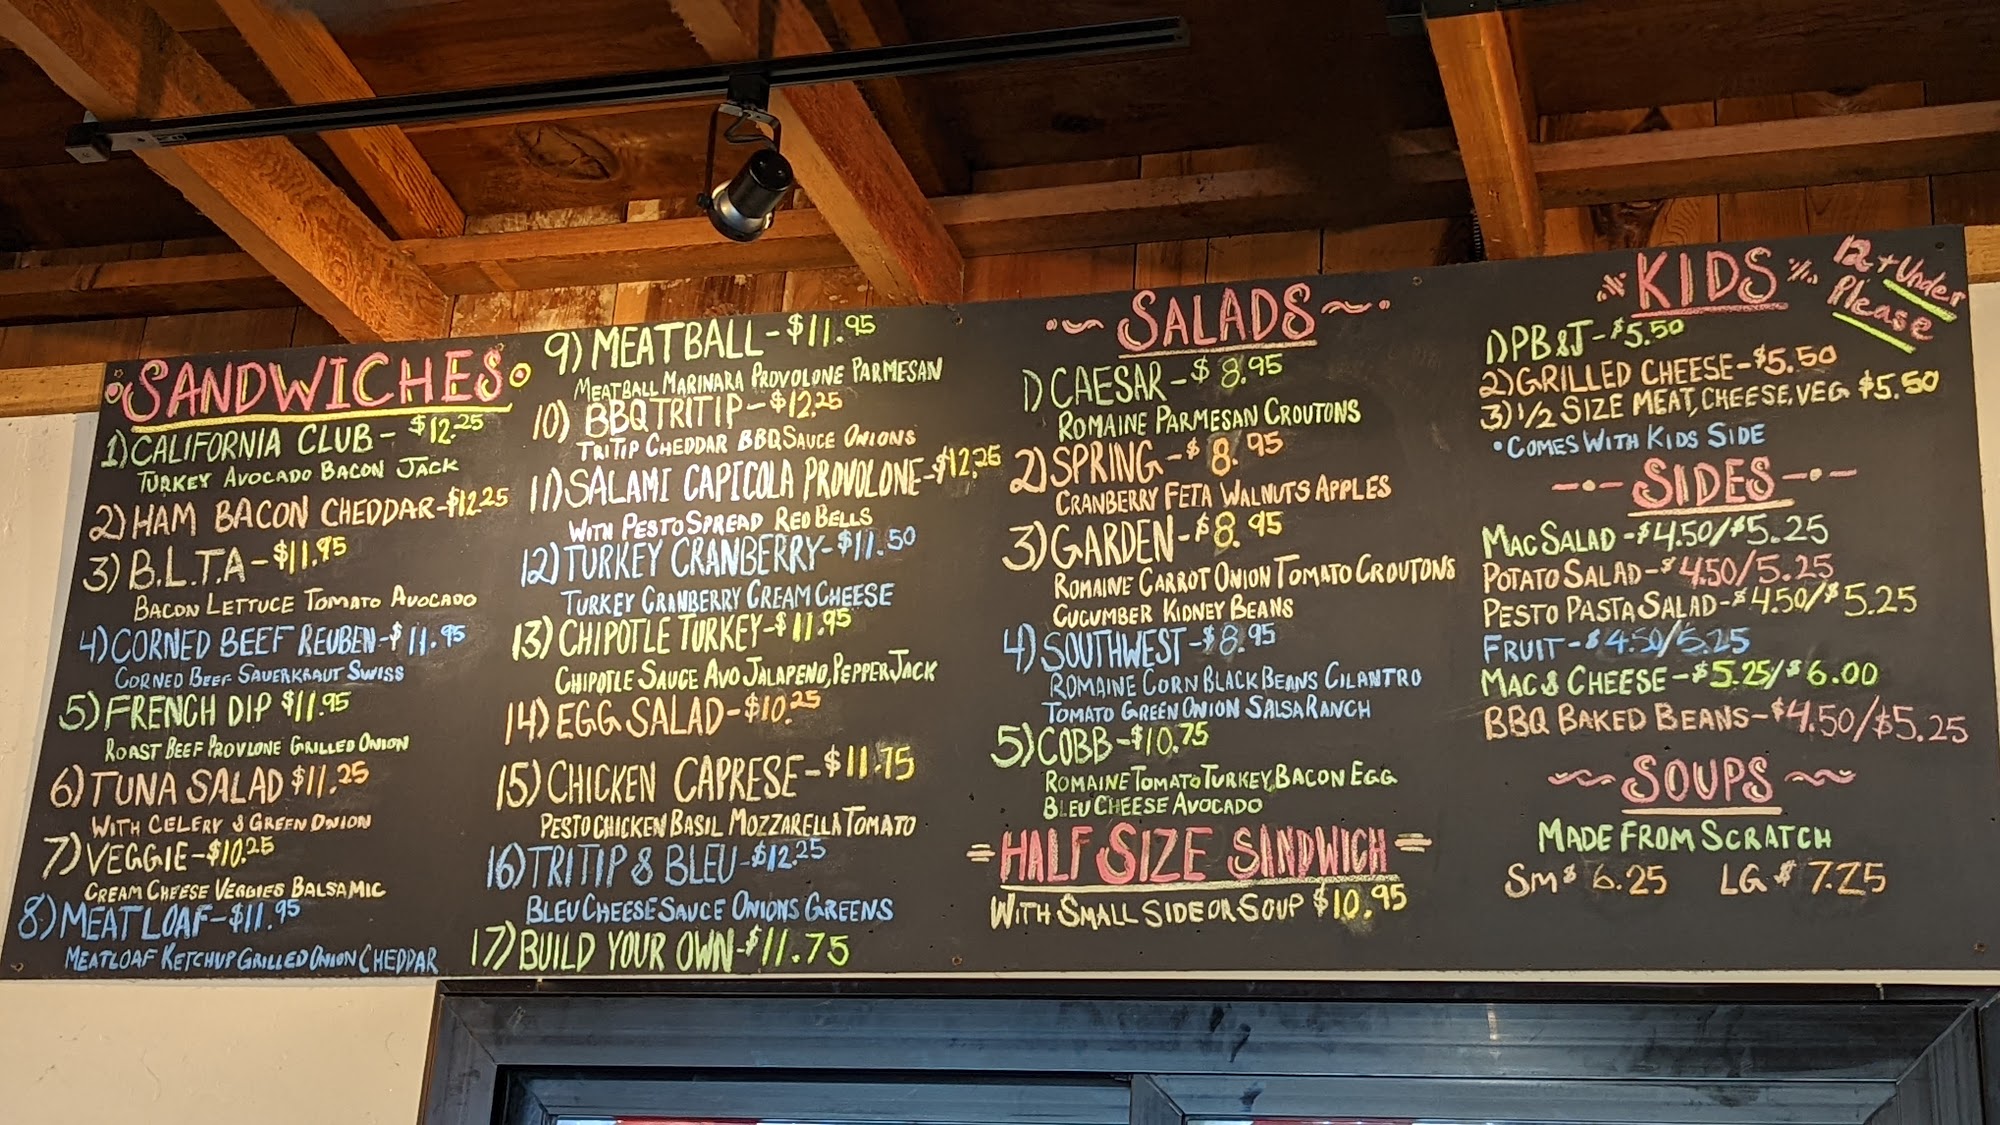 SANDWICHES
1) CALIFORNIA CLUB - $12.25
TURKEY AVOCADO BACON JACK
2) HAM BACON CHEDDAR - $12.25
3) B.L.T.A - $11.95
BACON LETTUCE TOMATO AVOCADO
4) CORNED BEEF REUBEN - $11.95
CORNED BEEF SAUERKRAUT SWISS
5) FRENCH DIP $11.95
ROAST BEEF PROVLONE GRILLED ONION
6) TUNA SALAD $11.25
WITH CELERY & GREEN ONION
7) VEGGIE - $10.25
CREAM CHEESE VEGGIES BALSAMIC
8) MEATLOAF - $11.95
MEATLOAF KETCHUP GRILLED ONION CHEDDAR
9) MEATBALL - $11.95
MEATBALL MARINARA PROVOLONE PARMESAN
10) BBQ TRITIP - $12.25
TRITIP CHEDDAR BBQ SAUCE ONIONS
11) SALAMI CAPICOLA PROVOLONE - $12.25
WITH PESTO SPREAD RED BELLS
12) TURKEY CRANBERRY - $11.50
TURKEY CRANBERRY CREAM CHEESE
13) CHIPOTLE TURKEY - $11.95
CHIPOTLE SAUCE AVO JALAPENO, PEPPER JACK
14) EGG SALAD - $10.25
15) CHICKEN CAPRESE - $11.75
PESTO CHICKEN BASIL MOZZARELLA TOMATO
16) TRITIP & BLEU - $12.25
BLEU CHEESE SAUCE ONIONS GREENS
17) BUILD YOUR OWN - $11.75
SALADS
1) CAESAR - $8.95
ROMAINE PARMESAN CROUTONS
2) SPRING - $8.95
CRANBERRY FETA WALNUTS APPLES
3) GARDEN - $8.95
ROMAINE CARROT ONION TOMATO CROUTONS
CUCUMBER KIDNEY BEANS
4) SOUTHWEST - $8.95
ROMAINE CORN BLACK BEANS CILANTRO
TOMATO GREEN ONION SALSA RANCH
5) COBB - $10.75
ROMAINE TOMATO TURKEY, BACON EGG
BLEU CHEESE AVOCADO
=HALF SIZE SANDWICH=
WITH SMALL SIDE OR SOUP $10.95
KIDS
12 + Under
Please
1) PB & J - $5.50
2) GRILLED CHEESE - $5.50
3) 1/2 SIZE MEAT, CHEESE, VEG $5.50
• COMES WITH KIDS SIDE
SIDES
MAC SALAD - $4.50/$5.25
POTATO SALAD - $4.50/5.25
PESTO PASTA SALAD - $4.50/$5.25
FRUIT - $4.50/5.25
MAC & CHEESE - $5.25/$6.00
BBQ BAKED BEANS - $4.50/$5.25
SOUPS
MADE FROM SCRATCH
Sm $6.25 LG $7.25